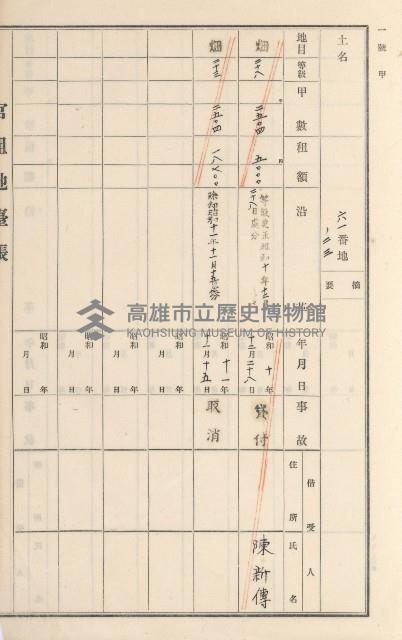 一號甲
土名
六一番地
ノ二三
摘要
地目 等級 甲數 租額 沿革 年月日 事故 借受人 住所 氏名
畑 二八 二五〇四 五〇〇〇
等級更正昭和十年十二月
二十八日處分
昭和十年十二月二十八日 貸付 陳新傳
畑 二三 二五〇四 一八〇〇
昭和十一年十一月十五日 取消
昭和 年 月 日
昭和 年 月 日
昭和 年 月 日
昭和 年 月 日
官租地臺帳
高雄市立歷史博物館
KAOHSIUNG MUSEUM OF HISTORY